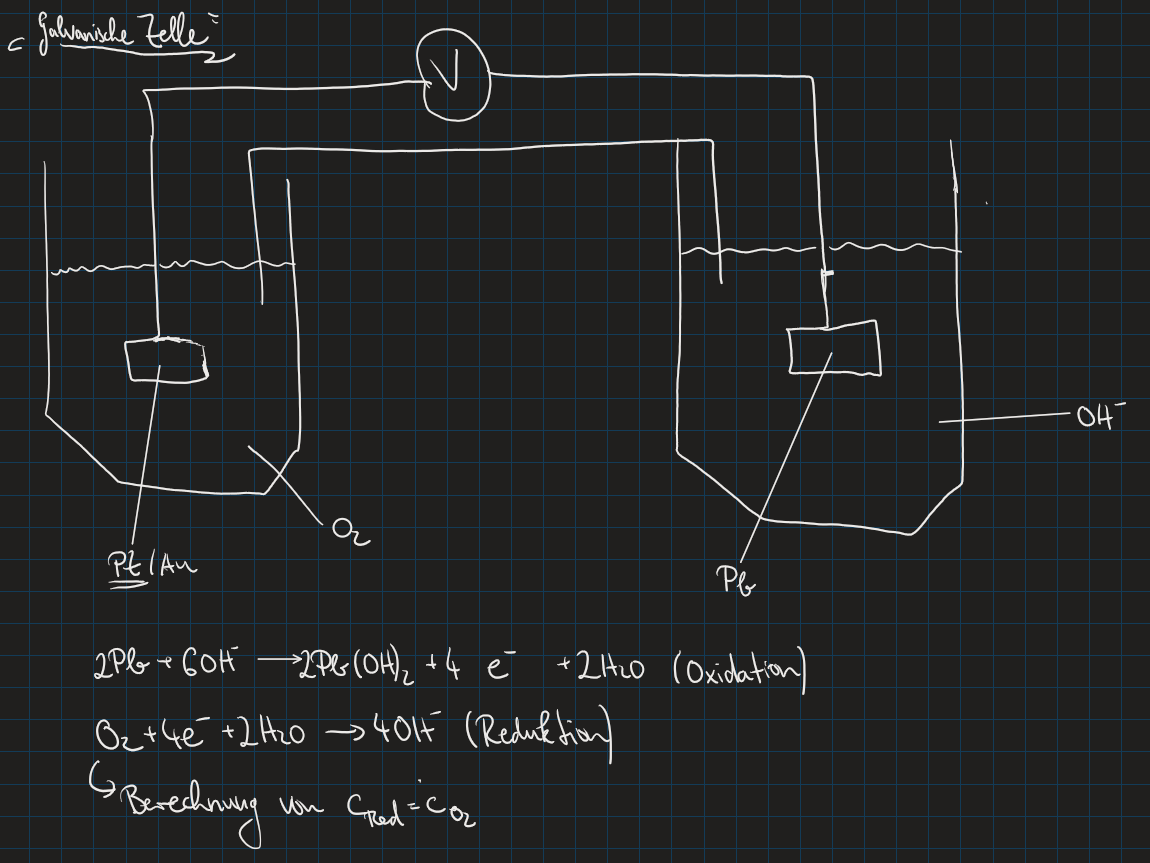 "Galvanische Zelle"
V
OH⁻
O₂
Pt/Au
Pb
2Pb + 6OH⁻ → 2Pb(OH)₂ + 4 e⁻ + 2H₂O (Oxidation)
O₂ + 4e⁻ + 2H₂O → 4OH⁻ (Reduktion)
↳ Berechnung von c_Red = c_O₂